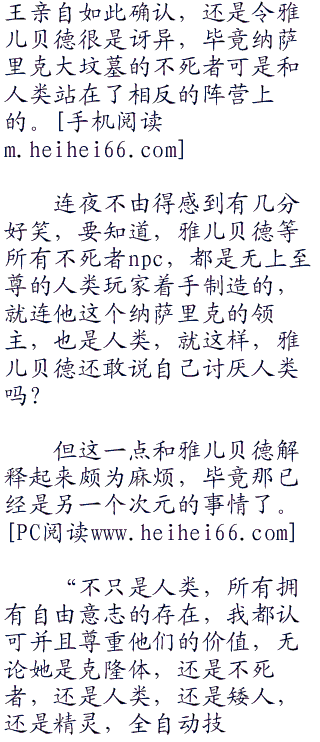 王亲自如此确认，还是令雅
儿贝德很是讶异，毕竟纳萨
里克大坟墓的不死者可是和
人类站在了相反的阵营上
的。[手机阅读
m.heihei66.com]
连夜不由得感到有几分
好笑，要知道，雅儿贝德等
所有不死者npc，都是无上至
尊的人类玩家着手制造的，
就连他这个纳萨里克的领
主，也是人类，就这样，雅
儿贝德还敢说自己讨厌人类
吗？
但这一点和雅儿贝德解
释起来颇为麻烦，毕竟那已
经是另一个次元的事情了。
[PC阅读www.heihei66.com]
“不只是人类，所有拥
有自由意志的存在，我都认
可并且尊重他们的价值，无
论她是克隆体，还是不死
者，还是人类，还是矮人，
还是精灵，全自动技